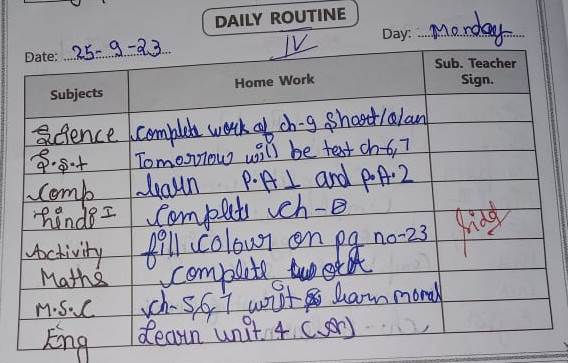 DAILY ROUTINE
IV
Date: 25-9-23 Day: Monday
Subjects Home Work Sub. Teacher Sign.
Science complete work of ch-9 Shoot/Q/an
S.S.t Tomorrow will be test ch-6,7
Comp learn P.A 1 and P.A.2
Hindi I Complete ch-8
Activity fill colour on pg no-23
Maths complete
M.S.C ch-5,6,7 writ learn moral
Eng Learn unit 4